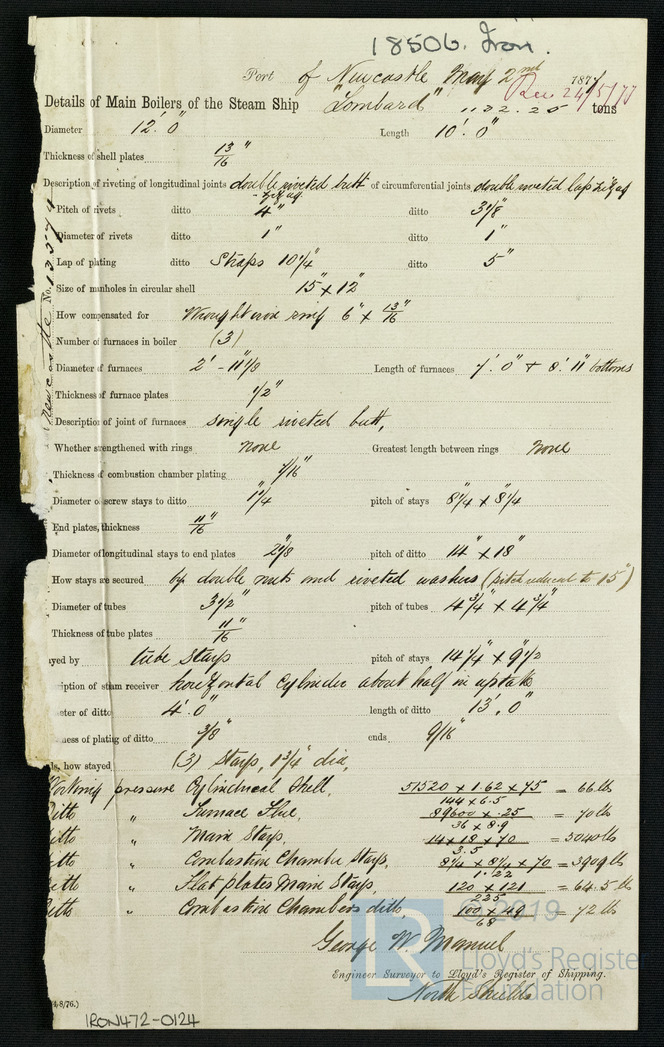 18506. Iron.
Port of Newcastle May 2nd 187
Rec 24/5/77
Details of Main Boilers of the Steam Ship "Lombard" 1122.25 tons
Diameter 12'. 0" Length 10'. 0"
Thickness of shell plates 13/16"
Description of riveting of longitudinal joints double riveted butt of circumferential joints double riveted lap zigzag
zigzag
Pitch of rivets ditto 4" ditto 3 1/8"
Diameter of rivets ditto 1" ditto 1"
Lap of plating ditto Straps 10 1/4" ditto 5"
Size of manholes in circular shell 15" x 12"
How compensated for Wrought iron ring 6" x 13/16"
Number of furnaces in boiler (3)
Diameter of furnaces 2' - 11 1/8 Length of furnaces 7'. 0" + 8'. 11" bottoms
Thickness of furnace plates 1/2"
Description of joint of furnaces single riveted butt,
Whether strengthened with rings none Greatest length between rings None
Thickness of combustion chamber plating 7/16"
Diameter of screw stays to ditto 1 1/4" pitch of stays 8 1/4" x 8 1/4"
End plates, thickness 11/16"
Diameter of longitudinal stays to end plates 2 1/8" pitch of ditto 14" x 18"
How stays are secured by double nuts and riveted washers (pitch reduced to 15")
Diameter of tubes 3 1/2" pitch of tubes 4 3/4" x 4 3/4"
Thickness of tube plates 11/16"
ayed by tube stays pitch of stays 14 1/4" x 9 1/2"
ription of steam receiver horizontal cylinder about half in uptake
eter of ditto 4'. 0" length of ditto 13'. 0"
ness of plating of ditto 3/8" ends 9/16"
ds, how stayed (3) stays, 1 3/4" dia,
Working pressure Cylindrical Shell, 51520 x 1.62 x 75 / 144 x 6.5 = 66 lb
Ditto " Furnace Flue, 89600 x .25 / 36 x 8.9 = 70 lb
Ditto " Main Stays, 14 x 18 x 70 / 3.5 = 5040 lb
Ditto " Combustion Chamber Stays, 8 1/4 x 8 1/4 x 70 / 1.22 = 3909 lb
Ditto " Flat plates Main Stays, 120 x 121 / 225 = 64.5 lb
Ditto " Combustion Chambers ditto, 100 x 49 / 68 = 72 lb
© 2019
George W. Manuel
Lloyd's Register
Engineer Surveyor to Lloyd's Register of Shipping.
Foundation
North Shields
8/76.)
IRON472-0124
Newcastle No. 13574
LR